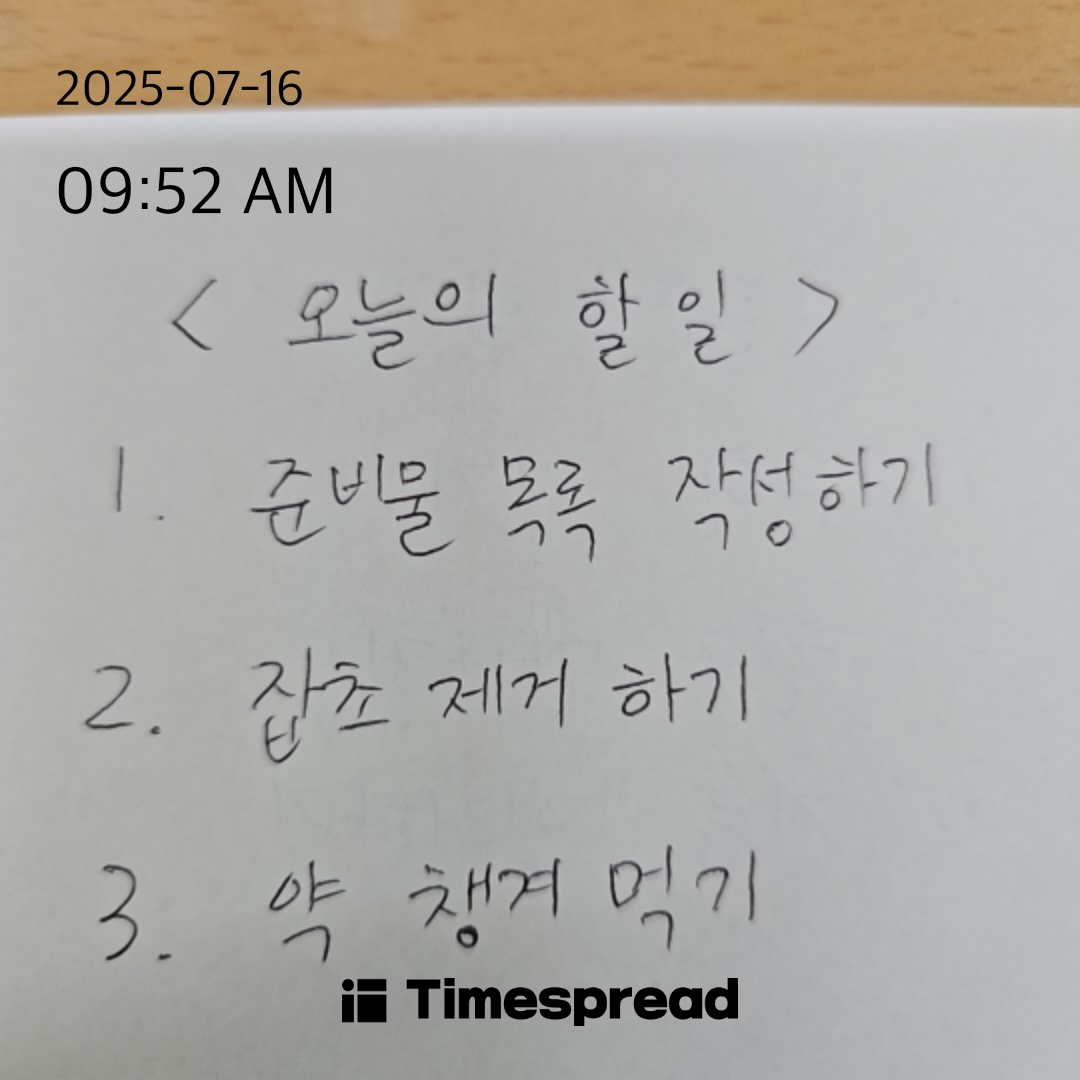 2025-07-16
09:52 AM
< 오늘의 할 일 >
1. 준비물 목록 작성하기
2. 잡초 제거 하기
3. 약 챙겨 먹기
Timespread